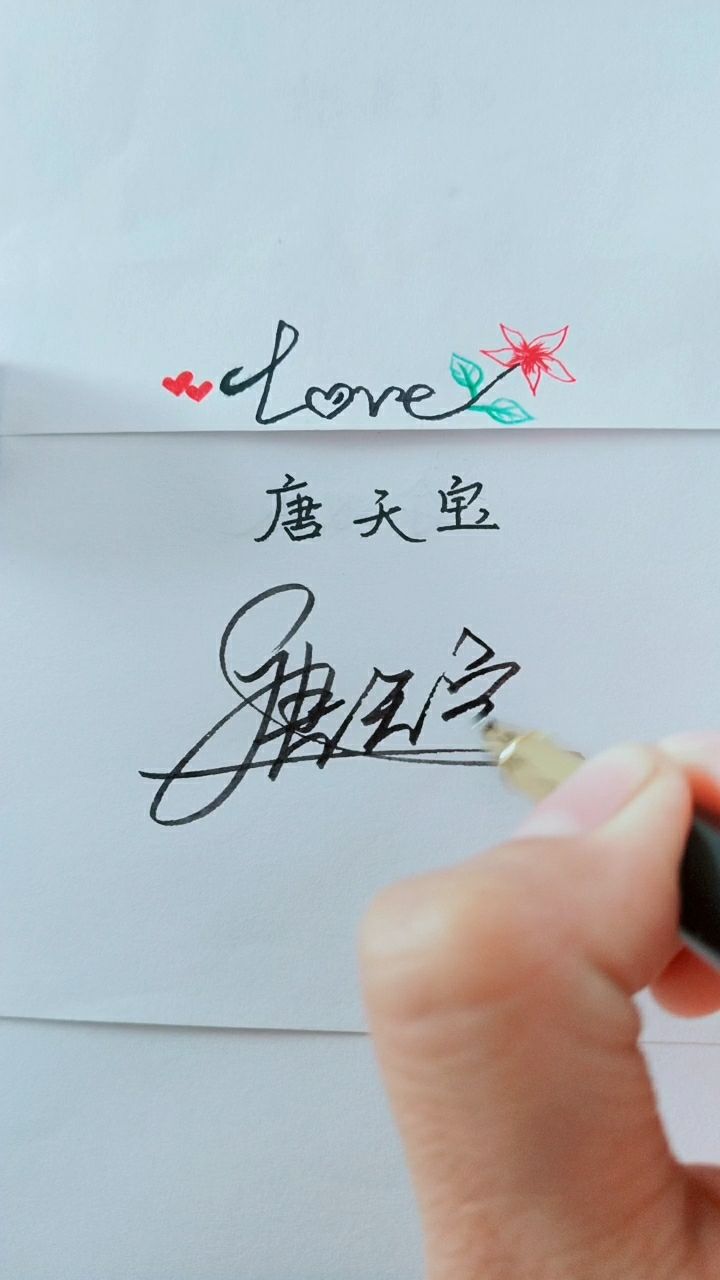 Love
唐天宝
唐天宝